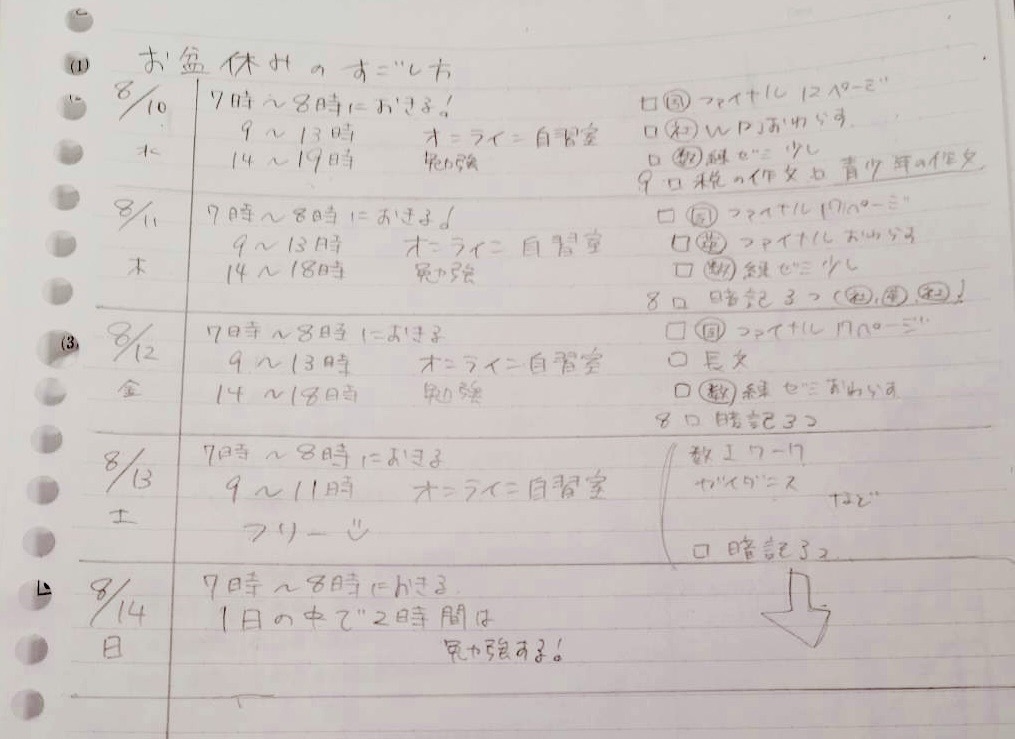 お盆休みのすごし方
8/10 水
7時～8時におきる!
9～13時 オンライン自習室
14～19時 勉強
□ 国 ファイナル 12ページ
□ 社 WPJおわらす
□ 数 練ゼミ少し
9 □ 税の作文 青少年の作文
8/11 木
7時～8時におきる!
9～13時 オンライン自習室
14～18時 勉強
□ 国 ファイナル 17ページ
□ 英 ファイナル おわらす
□ 数 練ゼミ少し
8 □ 暗記3つ
8/12 金
7時～8時におきる
9～13時 オンライン自習室
14～18時 勉強
□ 国 ファイナル 17ページ
□ 長文
□ 数 練ゼミおわらす
8 □ 暗記3つ
8/13 土
7時～8時におきる
9～11時 オンライン自習室
フリー
数Iワーク
ガイダンス
など
□ 暗記3つ
8/14 日
7時～8時におきる
1日の中で2時間は
勉強する!
(1)
(3)